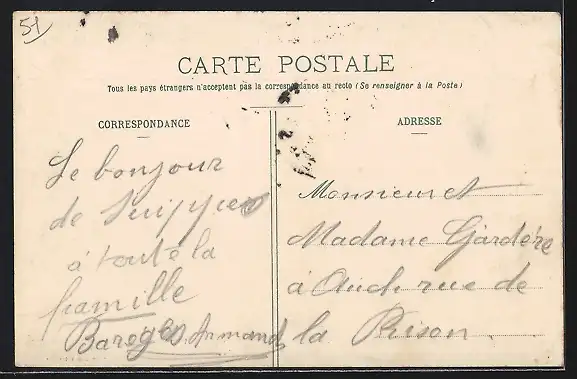 51
CARTE POSTALE
Tous les pays étrangers n'acceptent pas la correspondance au recto (Se renseigner à la Poste)
CORRESPONDANCE
ADRESSE
Le bonjour
de Suippes
à toute la
famille
Armand
Monsieur et
Madame Gardère
à Auch rue de
la Prison